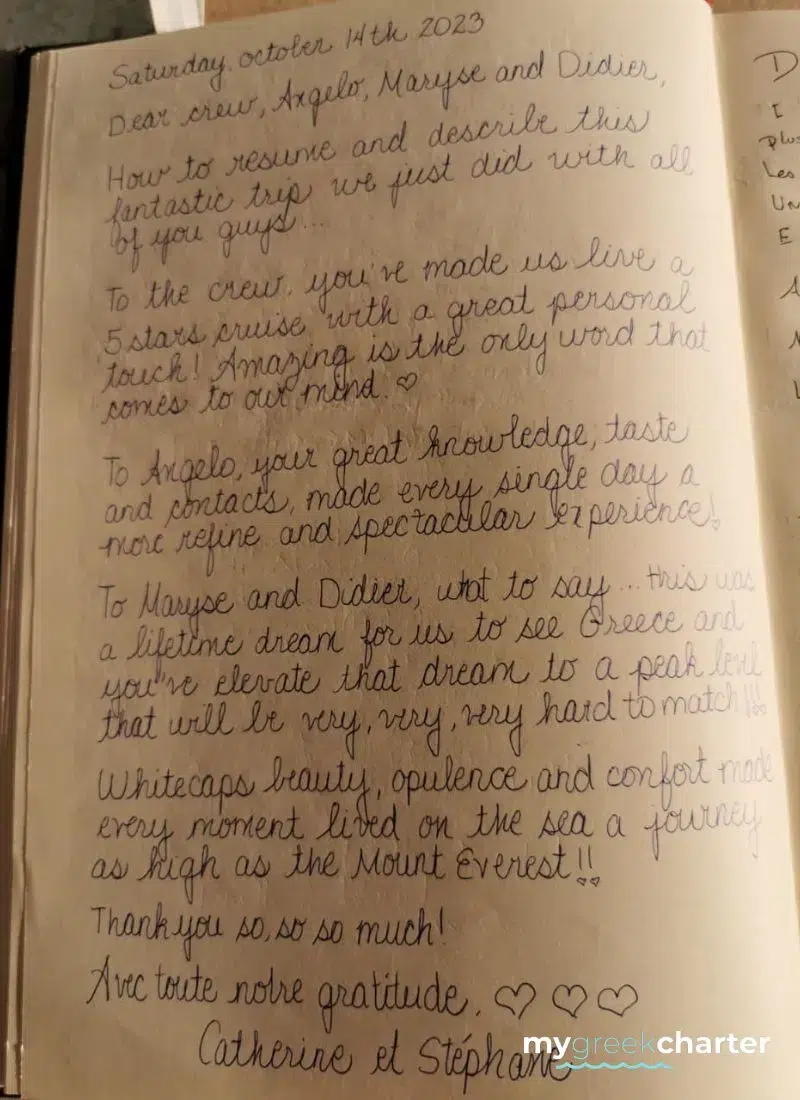 Saturday, october 14th 2023
Dear crew, Angelo, Maryse and Didier,
How to resume and describe this
fantastic trip we just did with all
of you guys...
To the crew, you've made us live a
5 stars cruise with a great personal
touch! Amazing is the only word that
comes to our mind. ♡
To Angelo, your great knowledge, taste
and contacts, made every single day a
more refine and spectacular experience!
To Maryse and Didier, what to say... this was
a lifetime dream for us to see Greece and
you've elevate that dream to a peak level
that will be very, very, very hard to match!!!
Whitecaps beauty, opulence and confort made
every moment lived on the sea a journey
as high as the Mount Everest!!
Thank you so, so so much!
Avec toute notre gratitude, ♡ ♡ ♡
Catherine et Stéphane
mygreekcharter
D
I
plus
Les
Un
E